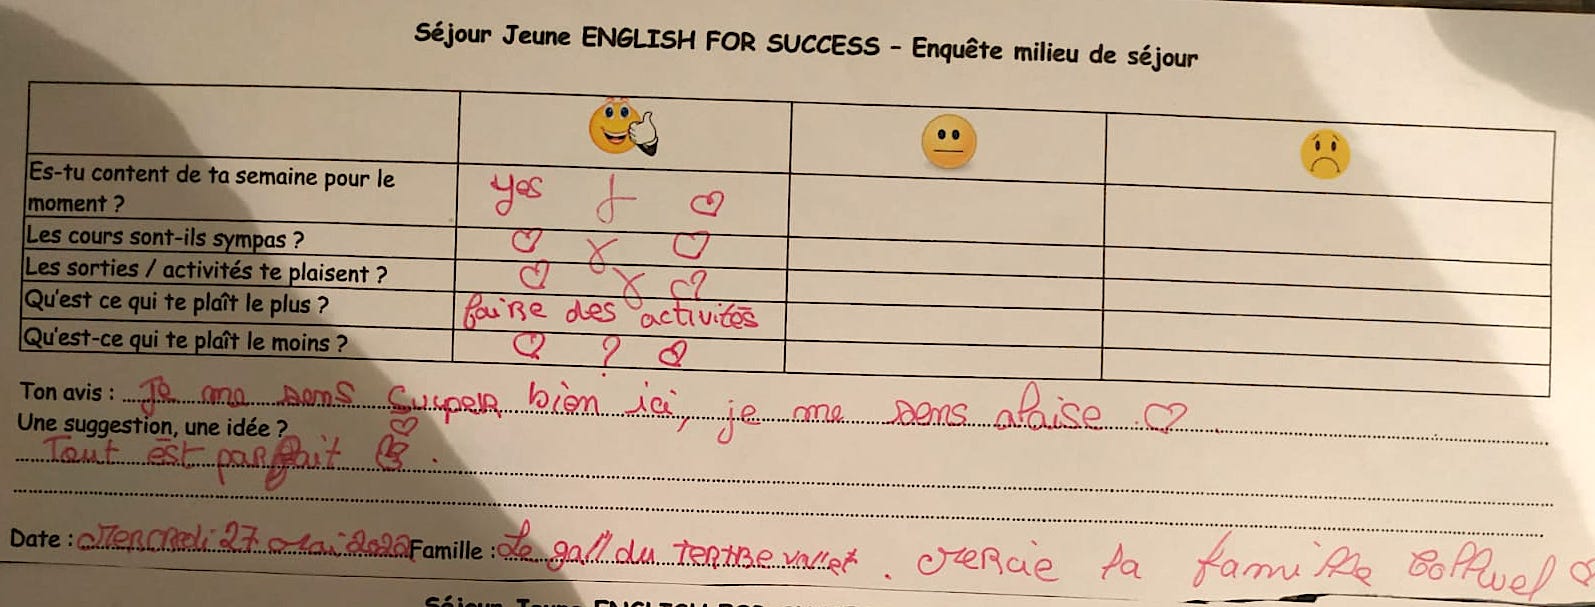 Séjour Jeune ENGLISH FOR SUCCESS - Enquête milieu de séjour
Es-tu content de ta semaine pour le
moment ?
yes
Les cours sont-ils sympas ?
Les sorties / activités te plaisent ?
Qu'est ce qui te plaît le plus ? faire des activités
Qu'est-ce qui te plaît le moins ? ?
Ton avis : Je me sens super bien ici, je me sens alaise.
Une suggestion, une idée ?
Tout est parfait
Date : Mercredi 27 Famille : Le gall du tertre vallet. Mercie la famille